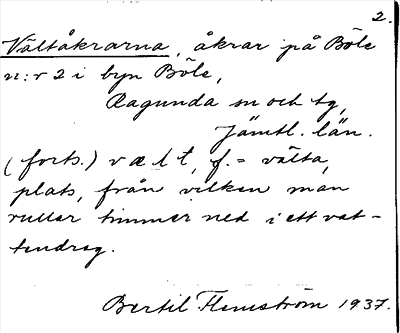 2.
Vältåkrarna, åkrar på Böle
n:r 2 i byn Böle,
Ragunda sn och tg,
Jämtl. län.
(forts.) vælt, f. = välta,
plats, från vilken man
rullar timmer ned i ett vat-
tendrag.
Bertil Flemström 1937.